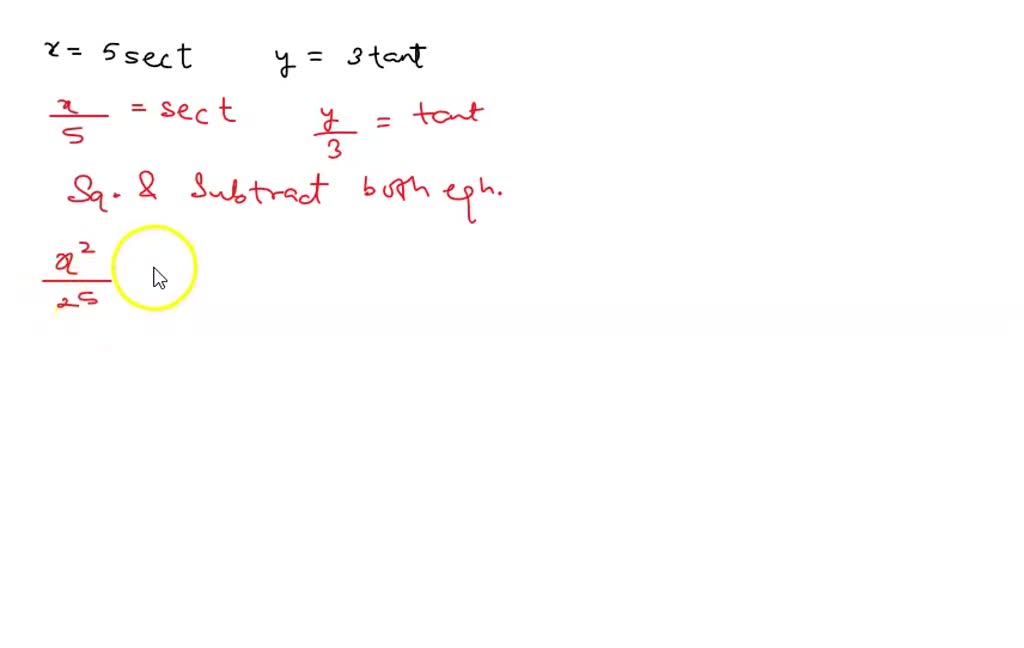 x = 5 sect y = 3 tant
x/5 = sect y/3 = tant
Sq. & Subtract both eqn.
x²/25